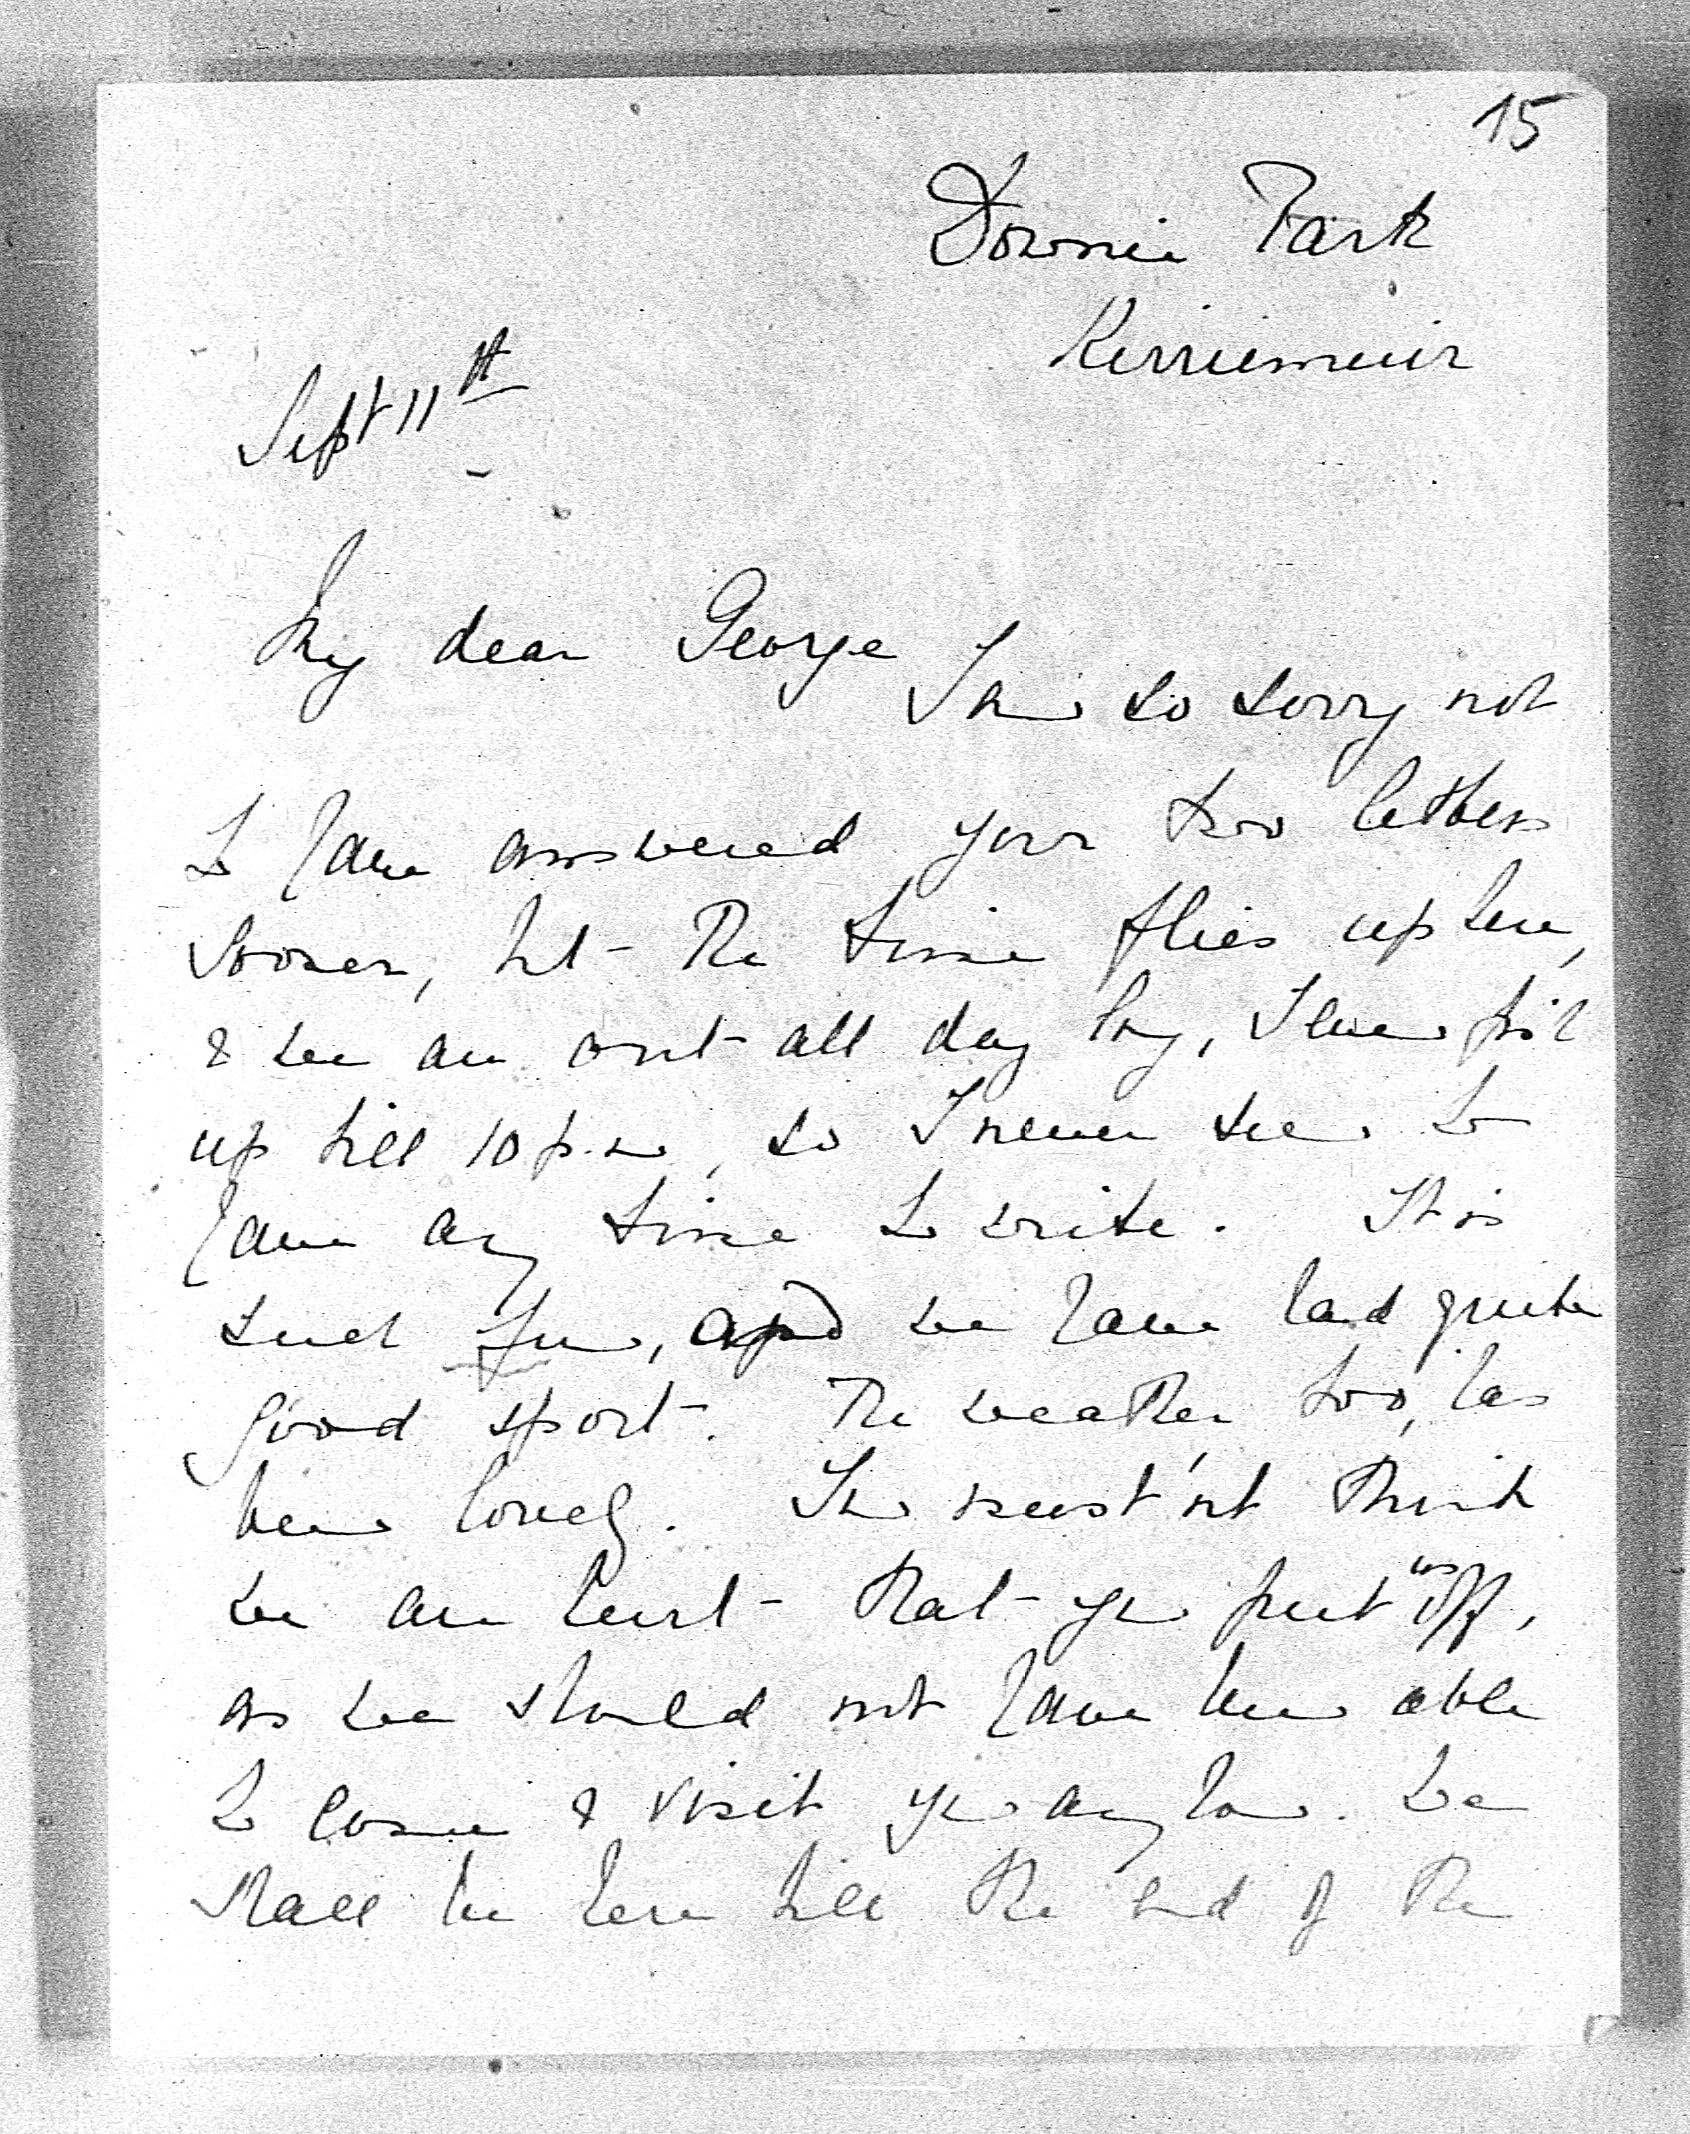 15
Downie Park
Kirriemuir
Sept 11th
My dear George
I am so sorry not
to have answered your two letters
sooner, but the time flies up here,
& we are out all day long, I even
up till 10 p.m, so I never seem to
have any time to write. It is
such fun, and we have had quite
good sport. The weather too, has
been lovely. You must'nt think
we are hurt that you put us off,
as we should not have been able
to come & visit you anyhow. We
shall be here till the end of the